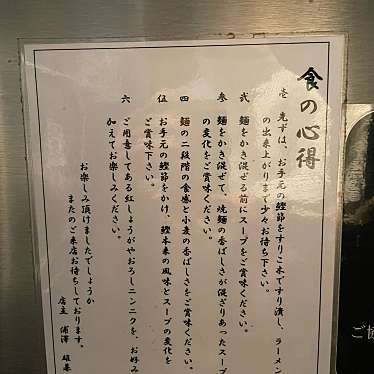 食の心得
壱 先ずは、お手元の鰹節をすりこ木ですり潰し、ラーメン
の出来上がりまで少々お待ち下さい。
弐 麺をかき混ぜる前にスープをご賞味ください。
参 麺をかき混ぜて、焼麺の香ばしさが混ざりあったスープ
の変化をご賞味ください。
四 麺の二段階の食感と小麦の香ばしさをご賞味ください。
伍 お手元の鰹節をかけ、鰹本来の風味とスープの変化を
ご賞味下さい。
六 ご用意してある紅しょうがやおろしニンニクを、お好み
加えてお楽しみください。
お楽しみ頂けましたでしょうか
またのご来店お待ちしております。
店主 浦澤 雄
ご協